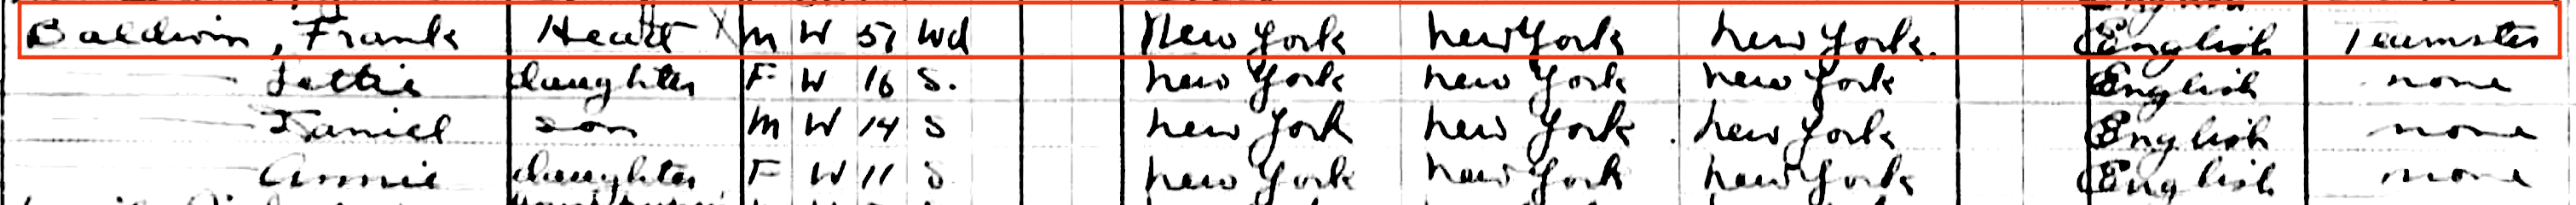 Baldwin, Frank Head M W 57 Wd New York New York New York. English Teamster
Lettie daughter F W 16 S. New York New York New York English none
Daniel son M W 14 S New York New York New York English none
Annie daughter F W 11 S New York New York New York English none